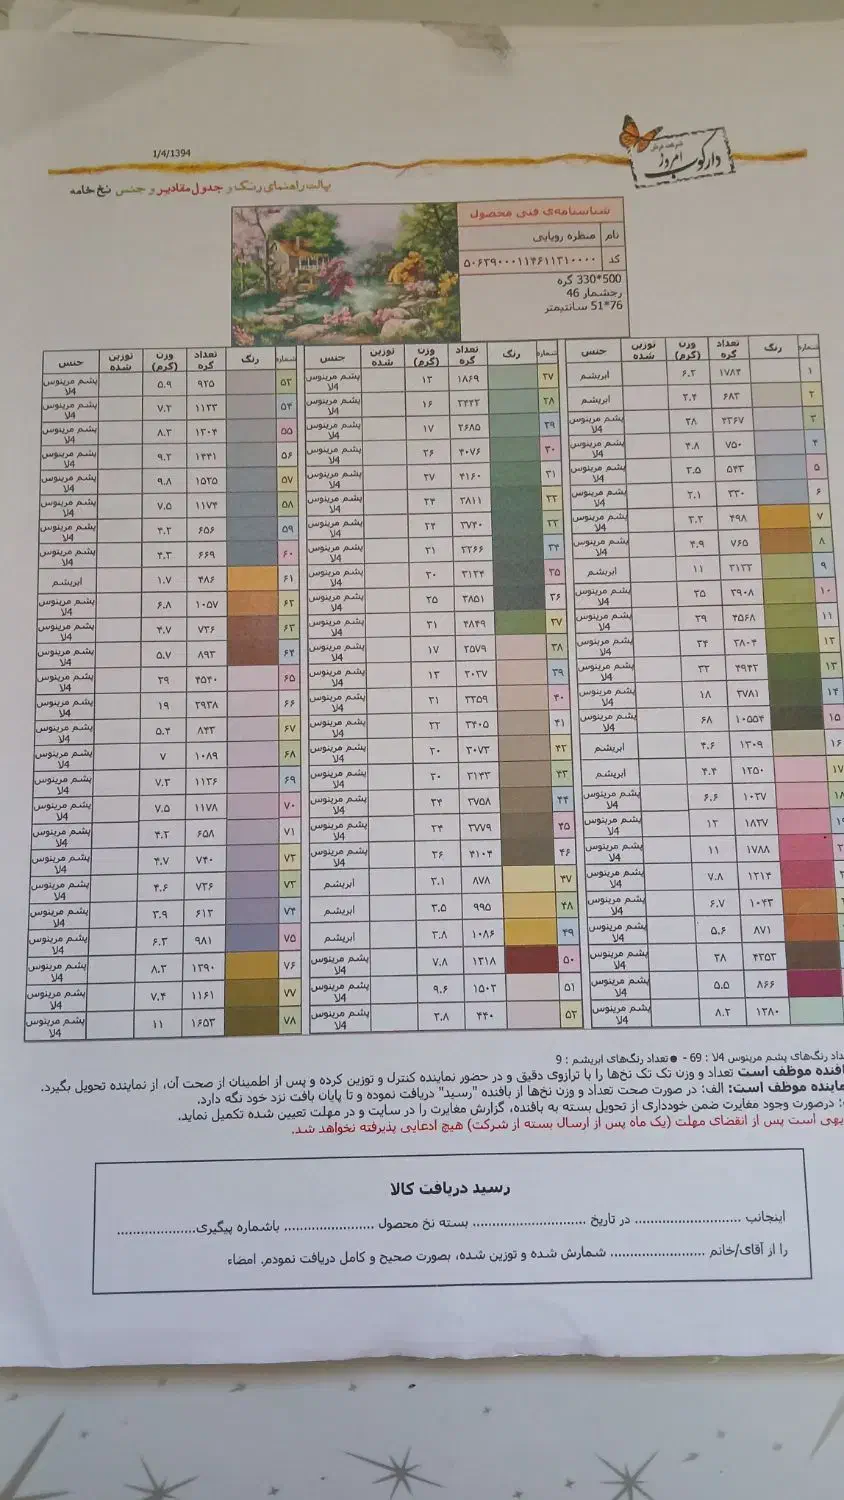 1/4/1394
شرکت فرش
دارکوب امروز
پالت راهنمای رنگ و جدول مقادیر و جنس نخ خامه
شناسنامه‌ی فنی محصول
نام منظره رویایی
کد ۵۰۶۲۹۰۰۰۱۱۴۶۱۱۲۱۰۰۰۰
500*330 گره
رجشمار 46
76*51 سانتیمتر
شماره رنگ تعداد گره وزن (گرم) توزین شده جنس
۱ ۱۷۸۴ ۶.۲ ابریشم
۲ ۶۸۲ ۲.۴ ابریشم
۳ ۴۳۶۷ ۲۸ پشم مرینوس 4لا
۴ ۷۵۰ ۴.۸ پشم مرینوس 4لا
۵ ۵۴۳ ۲.۵ پشم مرینوس 4لا
۶ ۳۳۰ ۲.۱ پشم مرینوس 4لا
۷ ۴۹۸ ۳.۲ پشم مرینوس 4لا
۸ ۷۶۵ ۴.۹ پشم مرینوس 4لا
۹ ۳۱۲۲ ۱۱ ابریشم
۱۰ ۳۹۰۸ ۲۵ پشم مرینوس 4لا
۱۱ ۴۵۶۸ ۲۹ پشم مرینوس 4لا
۱۲ ۳۸۰۴ ۲۴ پشم مرینوس 4لا
۱۳ ۴۹۴۲ ۳۲ پشم مرینوس 4لا
۱۴ ۲۷۸۱ ۱۸ پشم مرینوس 4لا
۱۵ ۱۰۵۵۴ ۶۸ پشم مرینوس 4لا
۱۶ ۱۳۰۹ ۴.۶ ابریشم
۱۷ ۱۲۵۰ ۴.۴ ابریشم
۱۰۲۷ ۶.۶ پشم مرینوس 4لا
۱۸۲۷ ۱۲ پشم مرینوس 4لا
۱۷۸۸ ۱۱ پشم مرینوس 4لا
۱۲۱۴ ۷.۸ پشم مرینوس 4لا
۱۰۴۳ ۶.۷ پشم مرینوس 4لا
۸۷۱ ۵.۶ پشم مرینوس 4لا
۴۳۵۳ ۲۸ پشم مرینوس 4لا
۸۶۶ ۵.۵ پشم مرینوس 4لا
۱۲۸۰ ۸.۲ پشم مرینوس 4لا
شماره رنگ تعداد گره وزن (گرم) توزین شده جنس
۲۷ ۱۸۶۹ ۱۲ پشم مرینوس 4لا
۲۸ ۲۴۴۲ ۱۶ پشم مرینوس 4لا
۲۹ ۲۶۸۵ ۱۷ پشم مرینوس 4لا
۳۰ ۴۰۷۶ ۲۶ پشم مرینوس 4لا
۳۱ ۴۱۶۰ ۲۷ پشم مرینوس 4لا
۳۲ ۳۸۱۱ ۲۴ پشم مرینوس 4لا
۳۳ ۳۷۴۰ ۲۴ پشم مرینوس 4لا
۳۴ ۳۲۶۶ ۲۱ پشم مرینوس 4لا
۳۵ ۳۱۲۴ ۲۰ پشم مرینوس 4لا
۳۶ ۳۸۵۱ ۲۵ پشم مرینوس 4لا
۳۷ ۴۸۴۹ ۳۱ پشم مرینوس 4لا
۳۸ ۲۵۷۹ ۱۷ پشم مرینوس 4لا
۳۹ ۲۰۲۷ ۱۳ پشم مرینوس 4لا
۴۰ ۳۲۵۹ ۲۱ پشم مرینوس 4لا
۴۱ ۳۴۰۵ ۲۲ پشم مرینوس 4لا
۴۲ ۳۰۷۳ ۲۰ پشم مرینوس 4لا
۴۳ ۳۱۴۳ ۲۰ پشم مرینوس 4لا
۴۴ ۳۷۵۸ ۲۴ پشم مرینوس 4لا
۴۵ ۳۷۷۹ ۲۴ پشم مرینوس 4لا
۴۶ ۴۱۰۴ ۲۶ پشم مرینوس 4لا
۴۷ ۸۷۸ ۳.۱ ابریشم
۴۸ ۹۹۵ ۳.۵ ابریشم
۴۹ ۱۰۸۶ ۳.۸ ابریشم
۵۰ ۱۲۱۸ ۷.۸ پشم مرینوس 4لا
۵۱ ۱۵۰۲ ۹.۶ پشم مرینوس 4لا
۵۲ ۴۴۰ ۲.۸ پشم مرینوس 4لا
شماره رنگ تعداد گره وزن (گرم) توزین شده جنس
۵۳ ۹۲۵ ۵.۹ پشم مرینوس 4لا
۵۴ ۱۱۲۳ ۷.۲ پشم مرینوس 4لا
۵۵ ۱۳۰۴ ۸.۳ پشم مرینوس 4لا
۵۶ ۱۴۴۱ ۹.۲ پشم مرینوس 4لا
۵۷ ۱۵۲۵ ۹.۸ پشم مرینوس 4لا
۵۸ ۱۱۷۴ ۷.۵ پشم مرینوس 4لا
۵۹ ۶۵۶ ۴.۲ پشم مرینوس 4لا
۶۰ ۶۶۹ ۴.۳ پشم مرینوس 4لا
۶۱ ۴۸۶ ۱.۷ ابریشم
۶۲ ۱۰۵۷ ۶.۸ پشم مرینوس 4لا
۶۳ ۷۳۶ ۴.۷ پشم مرینوس 4لا
۶۴ ۸۹۳ ۵.۷ پشم مرینوس 4لا
۶۵ ۴۵۴۰ ۲۹ پشم مرینوس 4لا
۶۶ ۲۹۳۸ ۱۹ پشم مرینوس 4لا
۶۷ ۸۴۳ ۵.۴ پشم مرینوس 4لا
۶۸ ۱۰۸۹ ۷ پشم مرینوس 4لا
۶۹ ۱۱۳۶ ۷.۳ پشم مرینوس 4لا
۷۰ ۱۱۷۸ ۷.۵ پشم مرینوس 4لا
۷۱ ۶۵۸ ۴.۲ پشم مرینوس 4لا
۷۲ ۷۴۰ ۴.۷ پشم مرینوس 4لا
۷۳ ۷۲۶ ۴.۶ پشم مرینوس 4لا
۷۴ ۶۱۲ ۳.۹ پشم مرینوس 4لا
۷۵ ۹۸۱ ۶.۳ پشم مرینوس 4لا
۷۶ ۱۲۹۰ ۸.۳ پشم مرینوس 4لا
۷۷ ۱۱۶۱ ۷.۴ پشم مرینوس 4لا
۷۸ ۱۶۵۳ ۱۱ پشم مرینوس 4لا
داد رنگ‌های پشم مرینوس 4لا : 69 - ●تعداد رنگ‌های ابریشم : 9
افنده موظف است تعداد و وزن تک تک نخ‌ها را با ترازوی دقیق و در حضور نماینده کنترل و توزین کرده و پس از اطمینان از صحت آن، از نماینده تحویل بگیرد.
ماینده موظف است: الف: در صورت صحت تعداد و وزن نخ‌ها از بافنده "رسید" دریافت نموده و تا پایان بافت نزد خود نگه دارد.
: درصورت وجود مغایرت ضمن خودداری از تحویل بسته به بافنده، گزارش مغایرت را در سایت و در مهلت تعیین شده تکمیل نماید.
یهی است پس از انقضای مهلت (یک ماه پس از ارسال بسته از شرکت) هیچ ادعایی پذیرفته نخواهد شد.
رسید دریافت کالا
اینجانب ........................... در تاریخ ............................. بسته نخ محصول ....................... باشماره پیگیری....................
را از آقای/خانم ........................ شمارش شده و توزین شده، بصورت صحیح و کامل دریافت نمودم. امضاء